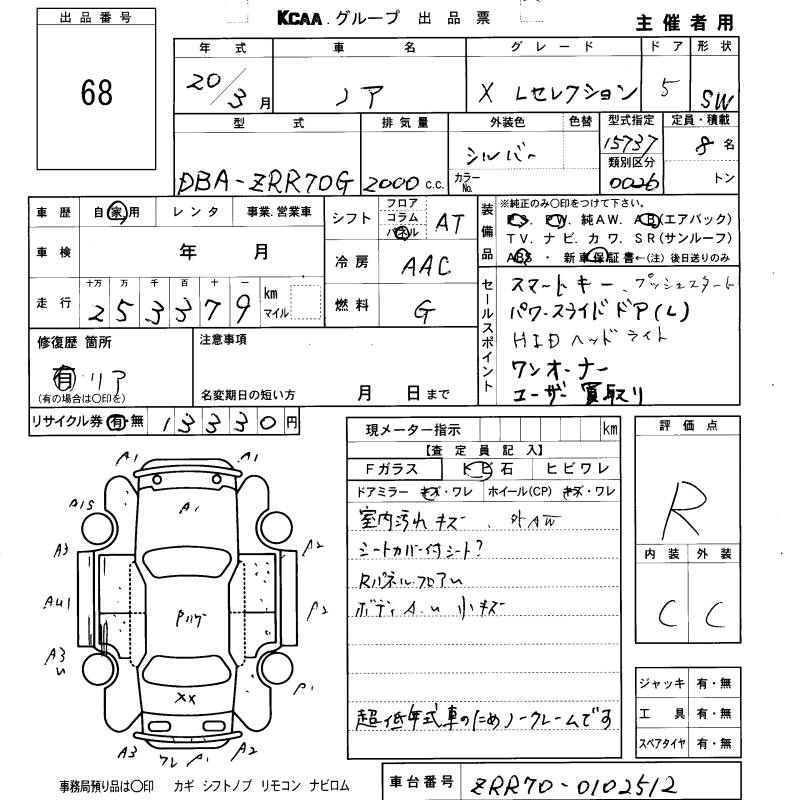 出品番号
68
KCAA.グループ 出品票
主催者用
年式 車名 グレード ドア 形状
20/3月 ノア X Lセレクション 5 SW
型式 排気量 外装色 色替 型式指定 定員・積載
DBA-ZRR70G 2000 c.c. シルバー カラーNo. 15737 8名
類別区分 0026 トン
車歴 自家用 レンタ 事業.営業車
シフト フロア コラム パネル AT
車検 年 月
冷房 AAC
走行 十万 万 千 百 十 一
253379 km マイル
燃料 G
装備品
※純正のみ〇印をつけて下さい。
PS. PW. 純AW. AB(エアバック)
TV. ナビ. カワ. SR(サンルーフ)
ABS ・ 新車保証書←(注)後日送りのみ
セールスポイント
スマートキー. プッシュスタート
パワースライドドア(L)
HIDヘッドライト
ワンオーナー
ユーザー買取り
修復歴 箇所
有 リア
(有の場合は〇印を)
注意事項
名変期日の短い方 月 日まで
リサイクル券 有・無 13330円
現メーター指示 km
【査定員記入】
Fガラス トビ石 ヒビワレ
ドアミラー キズ・ワレ ホイール(CP) キズ・ワレ
室内汚れキズ. 外AW
シートカバー付シート?
Rパネル.フロアU
ボディA.U小キズ
超低年式車のためノークレームです
評価点
R
内装 外装
C C
ジャッキ 有・無
工具 有・無
スペアタイヤ 有・無
A1 A1
A1S A1
A3 A2
AU1 P2
A3 U P1
XX
A3 ワレ A1 A2
事務局預り品は〇印 カギ シフトノブ リモコン ナビロム
車台番号 ZRR70-0102512